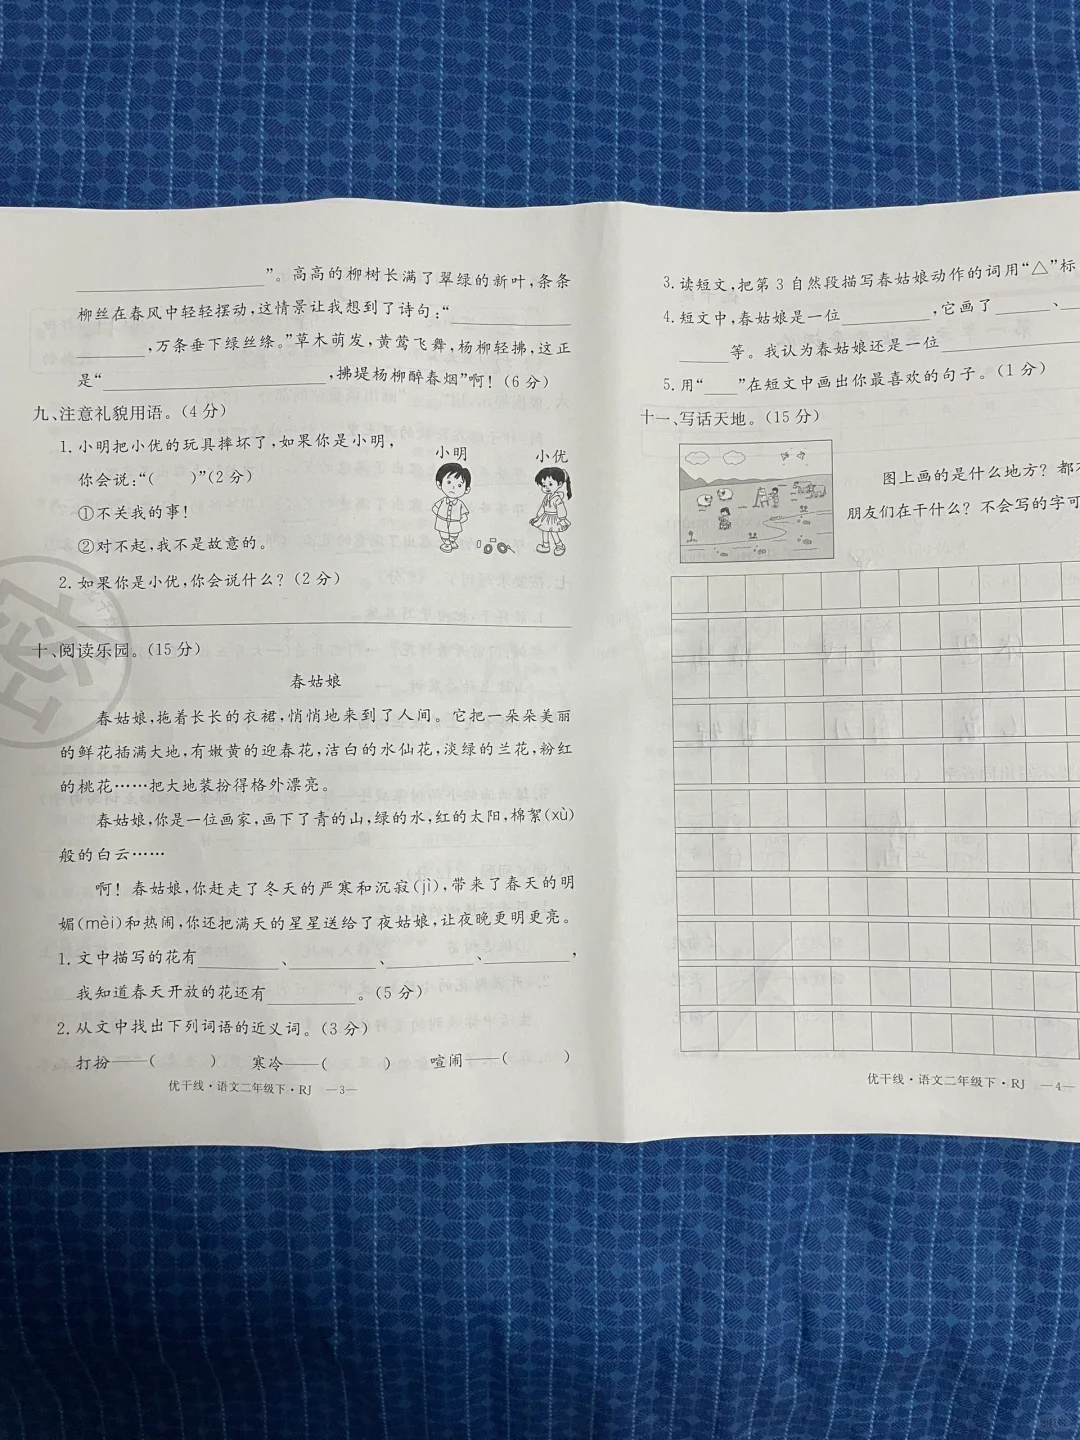 ”。高高的柳树长满了翠绿的新叶,条条
柳丝在春风中轻轻摆动,这情景让我想到了诗句:“
,万条垂下绿丝绦。”草木萌发,黄莺飞舞,杨柳轻拂,这正
是“ ,拂堤杨柳醉春烟”啊!(6分)
九、注意礼貌用语。(4分)
1.小明把小优的玩具摔坏了,如果你是小明,
你会说:“( )”(2分)
①不关我的事!
②对不起,我不是故意的。
小明 小优
2.如果你是小优,你会说什么?(2分)
密
十、阅读乐园。(15分)
春姑娘
春姑娘,拖着长长的衣裙,悄悄地来到了人间。它把一朵朵美丽
的鲜花插满大地,有嫩黄的迎春花,洁白的水仙花,淡绿的兰花,粉红
的桃花……把大地装扮得格外漂亮。
春姑娘,你是一位画家,画下了青的山,绿的水,红的太阳,棉絮(xù)
般的白云……
啊!春姑娘,你赶走了冬天的严寒和沉寂(jì),带来了春天的明
媚(mèi)和热闹,你还把满天的星星送给了夜姑娘,让夜晚更明更亮。
1.文中描写的花有 、 、 、 ,
我知道春天开放的花还有 。(5分)
2.从文中找出下列词语的近义词。(3分)
打扮——( ) 寒冷——( ) 喧闹——( )
优干线·语文二年级下·RJ —3—
3.读短文,把第3自然段描写春姑娘动作的词用“△”标
4.短文中,春姑娘是一位 ,它画了 、
等。我认为春姑娘还是一位
5.用“ ”在短文中画出你最喜欢的句子。(1分)
十一、写话天地。(15分)
图上画的是什么地方?都
朋友们在干什么?不会写的字可
优干线·语文二年级下·RJ —4—